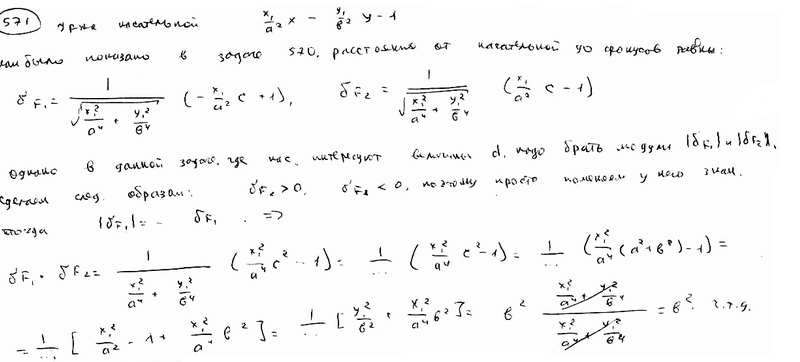 571 ур-ие касательной x₁/a² x − y₁/в² y − 1
как было показано в задаче 570, расстояние от касательной до фокусов равны:
δF₁ = 1/√(x₁²/a⁴ + y₁²/в⁴) (−x₁/a² c + 1), δF₂ = 1/√(x₁²/a⁴ + y₁²/в⁴) (x₁/a² c − 1)
однако в данной задаче, где нас интересуют величины d, надо брать модули |δF₁| и |δF₂|,
сделаем след. образом: δF₂ > 0, δF₁ < 0, поэтому просто поменяем у него знак.
тогда |δF₁| = − δF₁ . =>
δF₁ · δF₂ = 1/(x₁²/a⁴ + y₁²/в⁴) (x₁²/a⁴ c² − 1) = 1/... (x₁²/a⁴ c² − 1) = 1/... (x₁²/a⁴ (a² + в²) − 1) =
= 1/... [x₁²/a² − 1 + x₁²/a⁴ в²] = 1/... [y₁²/в² + x₁²/a⁴ в²] = в² (x₁²/a⁴ + y₁²/в⁴)/(x₁²/a⁴ + y₁²/в⁴) = в². ч.т.д.